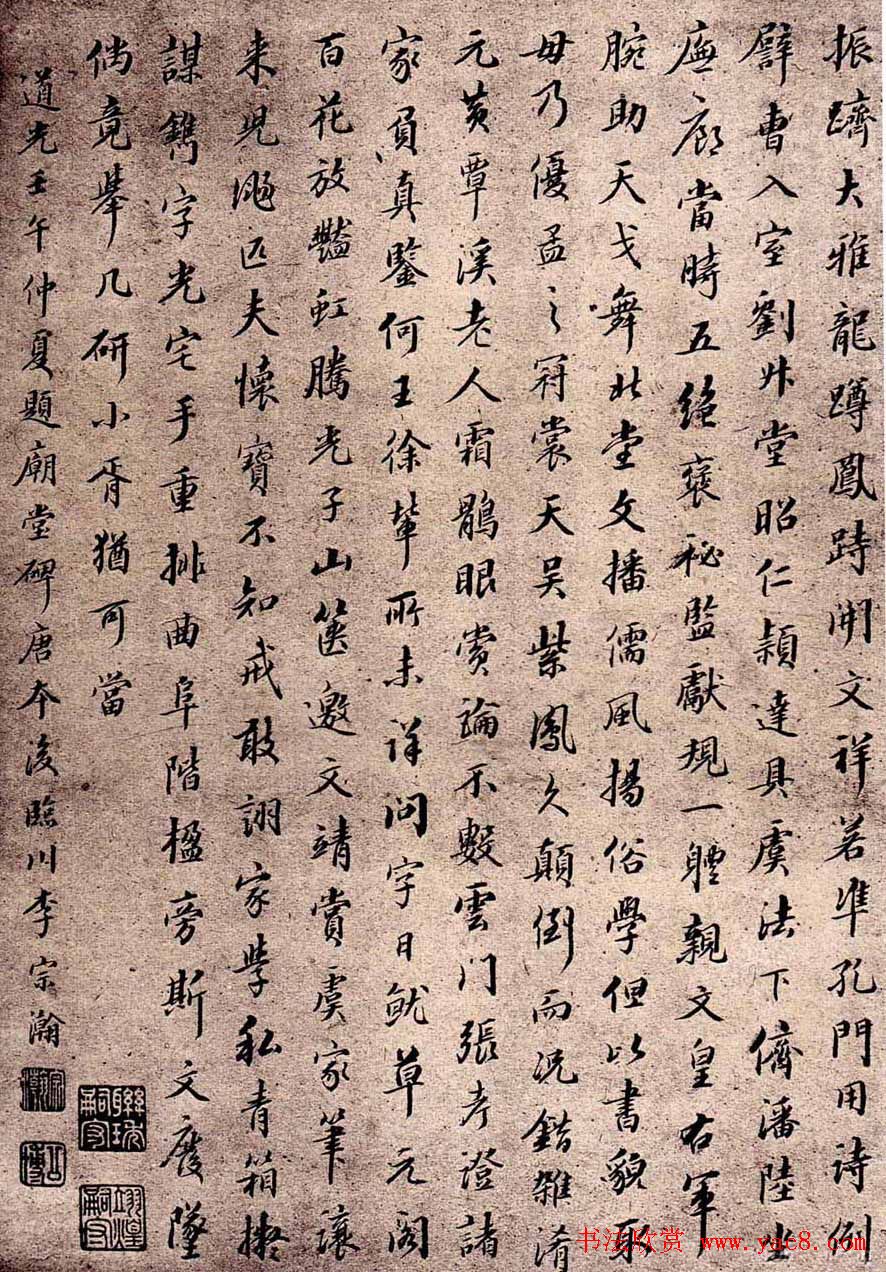 振躋大雅龍蹲鳳跱開文祥若準孔門用詩例
譬曹入室劉升堂昭仁穎達具虞法下儕潘陸坐
廡廊當時五絕褒秘監獻規一體親文皇右軍
腕助天戈舞北堂文播儒風揚俗學但以書貌取
毋乃優孟之冠裳天吳紫鳳久顛倒而況錯雜淆
元黃覃溪老人霜鶻眼賞論不數雲門張考證諸
家負真鑒何王徐輩所未詳問字日勉草元閣
百花放豔虹騰光子山篋邀文靖賞虞家筆讓
來見遜匹夫懷寶不知戒敢詡家學私青箱擬
謀鐫字光宅手重排曲阜階楹旁斯文廢墜
倘竟舉几研小胥猶可當
道光壬午仲夏題廟堂碑唐本後臨川李宗瀚
书法欣赏 www.yac8.com